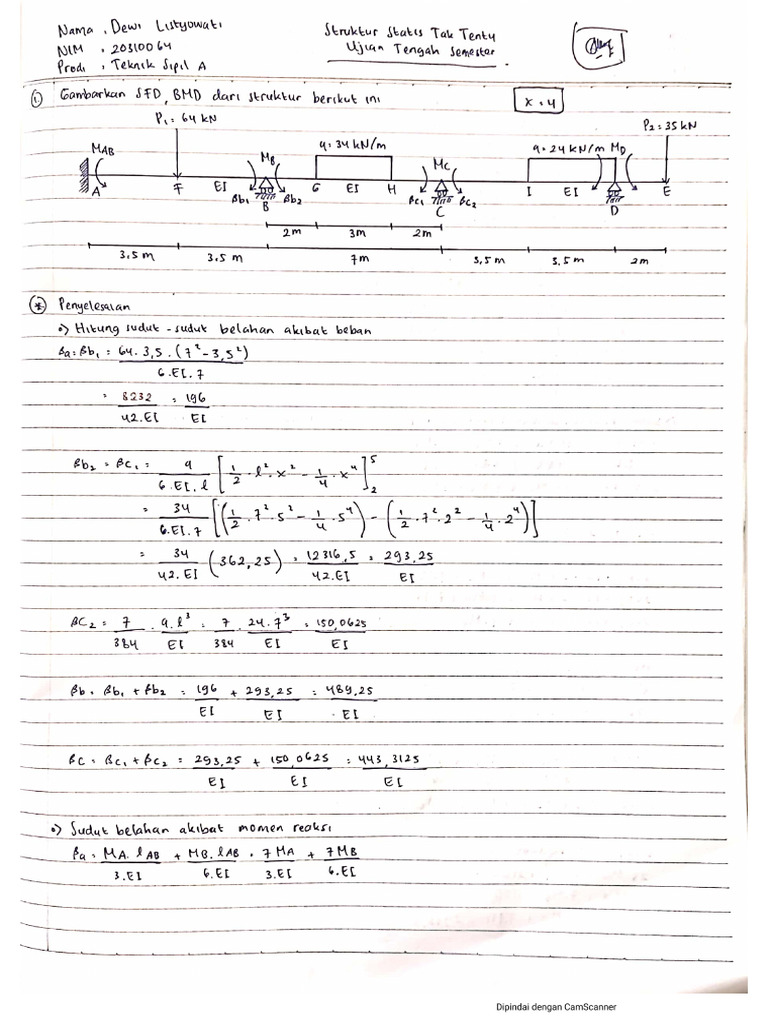 Nama : Dewi Listyowati
NIM : 20310064
Prodi : Teknik Sipil A
Struktur Statis Tak Tentu
Ujian Tengah Semester
1. Gambarkan SFD, BMD dari struktur berikut ini
x = 4
P1 = 64 kN
P2 = 35 kN
q = 34 kN/m
q = 24 kN/m
MAB MB MC MD
A F EI B G EI H C I EI D E
βb1 βb2 βc1 βc2
2m 3m 2m
3.5m 3.5m 7m 3,5m 3,5m 2m
* Penyelesaian
•) Hitung sudut - sudut belahan akibat beban
βa = βb1 = 64 . 3,5 . (7² - 3,5²) / 6.EI.7
= 8232 / 42.EI = 196 / EI
βb2 = βc1 = q / 6.EI.l [1/2 . l² . x² - 1/4 . x⁴]₂⁵
= 34 / 6.EI.7 [(1/2 . 7² . 5² - 1/4 . 5⁴) - (1/2 . 7² . 2² - 1/4 . 2⁴)]
= 34 / 42.EI (362,25) = 12316,5 / 42.EI = 293,25 / EI
βC2 = 7/384 . q.l³ / EI = 7/384 . 24.7³ / EI = 150,0625 / EI
βb = βb1 + βb2 = 196 / EI + 293,25 / EI = 489,25 / EI
βC = βc1 + βc2 = 293,25 / EI + 150,0625 / EI = 443,3125 / EI
•) Sudut belahan akibat momen reaksi
βa = MA.lAB / 3.EI + MB.lAB / 6.EI = 7MA / 3.EI + 7MB / 6.EI
Dipindai dengan CamScanner